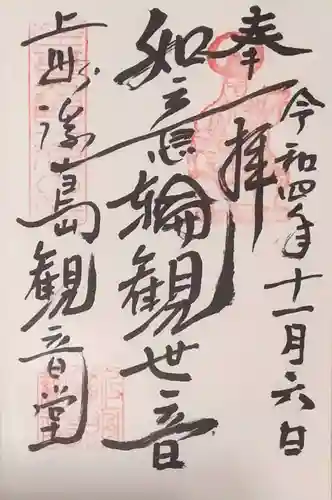 奉拝
令和四年十一月六日
如意輪観世音
島観音堂